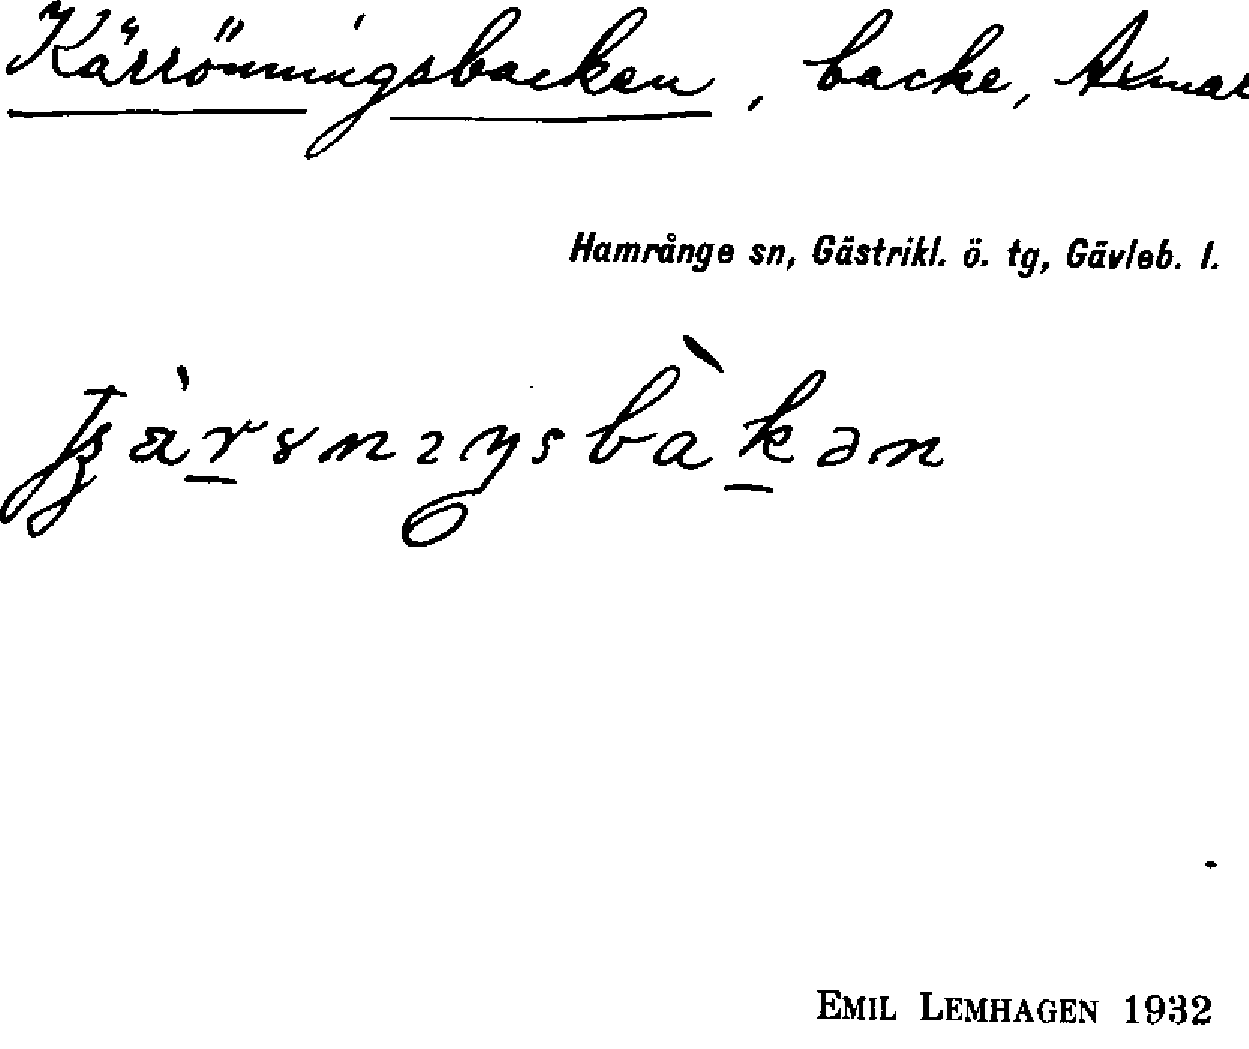 Kärrönningsbacken, backe, Axmar
Hamrånge sn, Gästrikl. ö. tg, Gävleb. l.
EMIL LEMHAGEN 1932